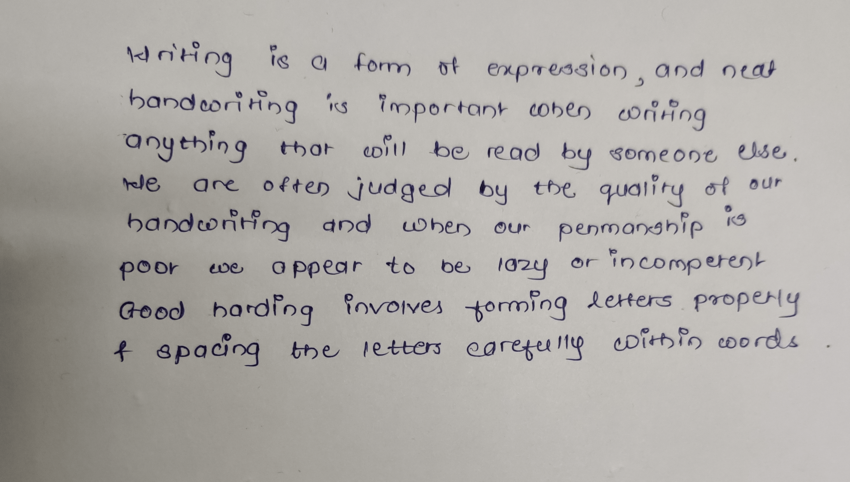 Writing is a form of expression, and neat
handwriting is important when writing
anything that will be read by someone else.
We are often judged by the quality of our
handwriting and when our penmanship is
poor we appear to be lazy or incompetent
Good harding involves forming letters properly
& spacing the letters carefully within words.